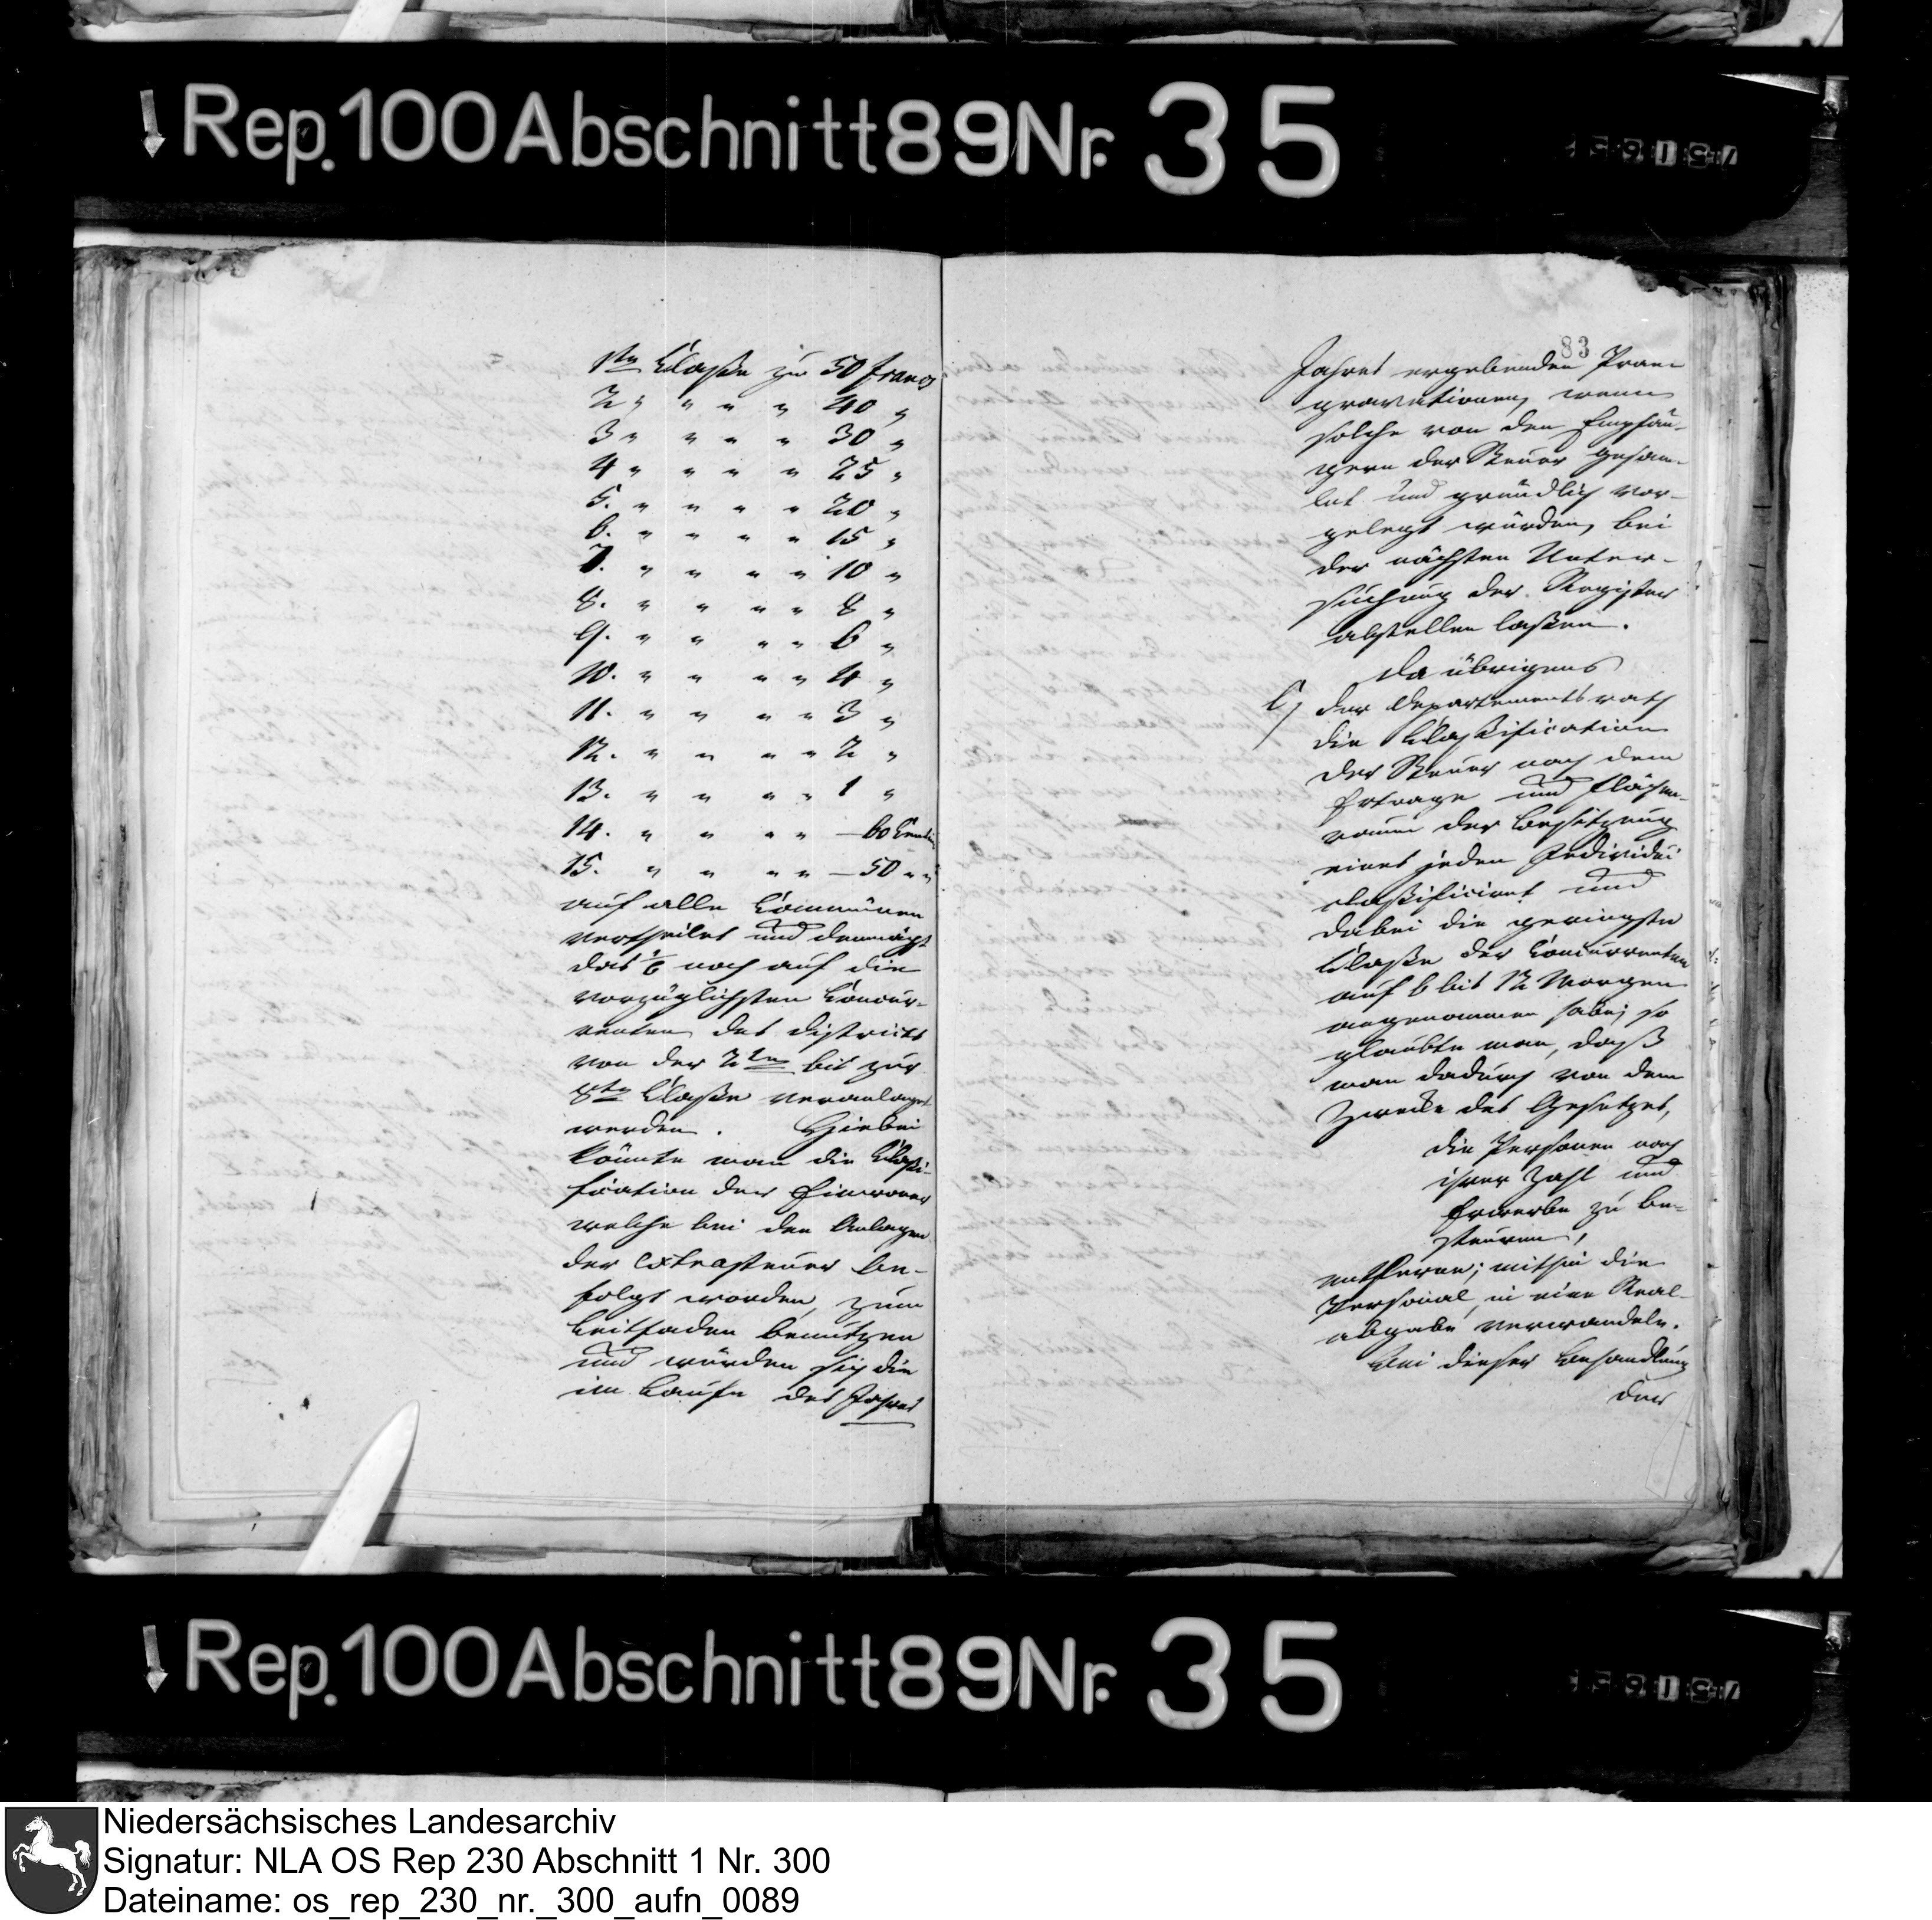 Rep. 100 Abschnitt 89 Nr. 35
1te Classe zu 50 francs
2 " " " " 40 "
3 " " " " 30 "
4 " " " " 25 "
5. " " " " 20 "
6. " " " " 15 "
7. " " " " 10 "
8. " " " " 8 "
9. " " " " 6 "
10. " " " " 4 "
11. " " " " 3 "
12. " " " " 2 "
13. " " " " 1 "
14. " " " " — 60
15. " " " " — 50 " "
auf alle Communen
vertheilet und demnächst
das 1/6 noch auf die
vorzüglichsten Concur-
renten des Districts
von der 2ten bis zur
8te Classe veranlaget
werden. Hiebei
könnte man die Classi-
fication der Einwoner
welche bei den Anlagen
der Extrasteuer be-
folgt worden, zum
Leitfaden benutzen
und würden sich die
im Laufe des Jahres
83
Jahres ergebenden Prae-
gravationen, wenn
solche von den Empfän-
gern der Steuer gesam-
let und gründlich vor-
gelegt würden, bei
der nächsten Unter-
suchung der Register
abstellen lassen.
Da übrigens
der Departementsrath
die Classification
der Steuer nach dem
Ertrage und Flächen-
raum der Besitzung
eines jeden Individui
classificirt und
dabei die geringste
Classe der Concurrenten
auf 6 bis 12 Morgen
angenommen habe; so
glaubte man, daß
man dadurch von dem
Zwecke des Gesetzes,
die Personen nach
ihrer Zahl und
Erwerbe zu be-
steuren,
entferne; mithin die
Personal in eine Real-
abgabe verwandele.
Bei dieser Behandlung
der
Rep. 100 Abschnitt 89 Nr. 35
Niedersächsisches Landesarchiv
Signatur: NLA OS Rep 230 Abschnitt 1 Nr. 300
Dateiname: os_rep_230_nr._300_aufn_0089